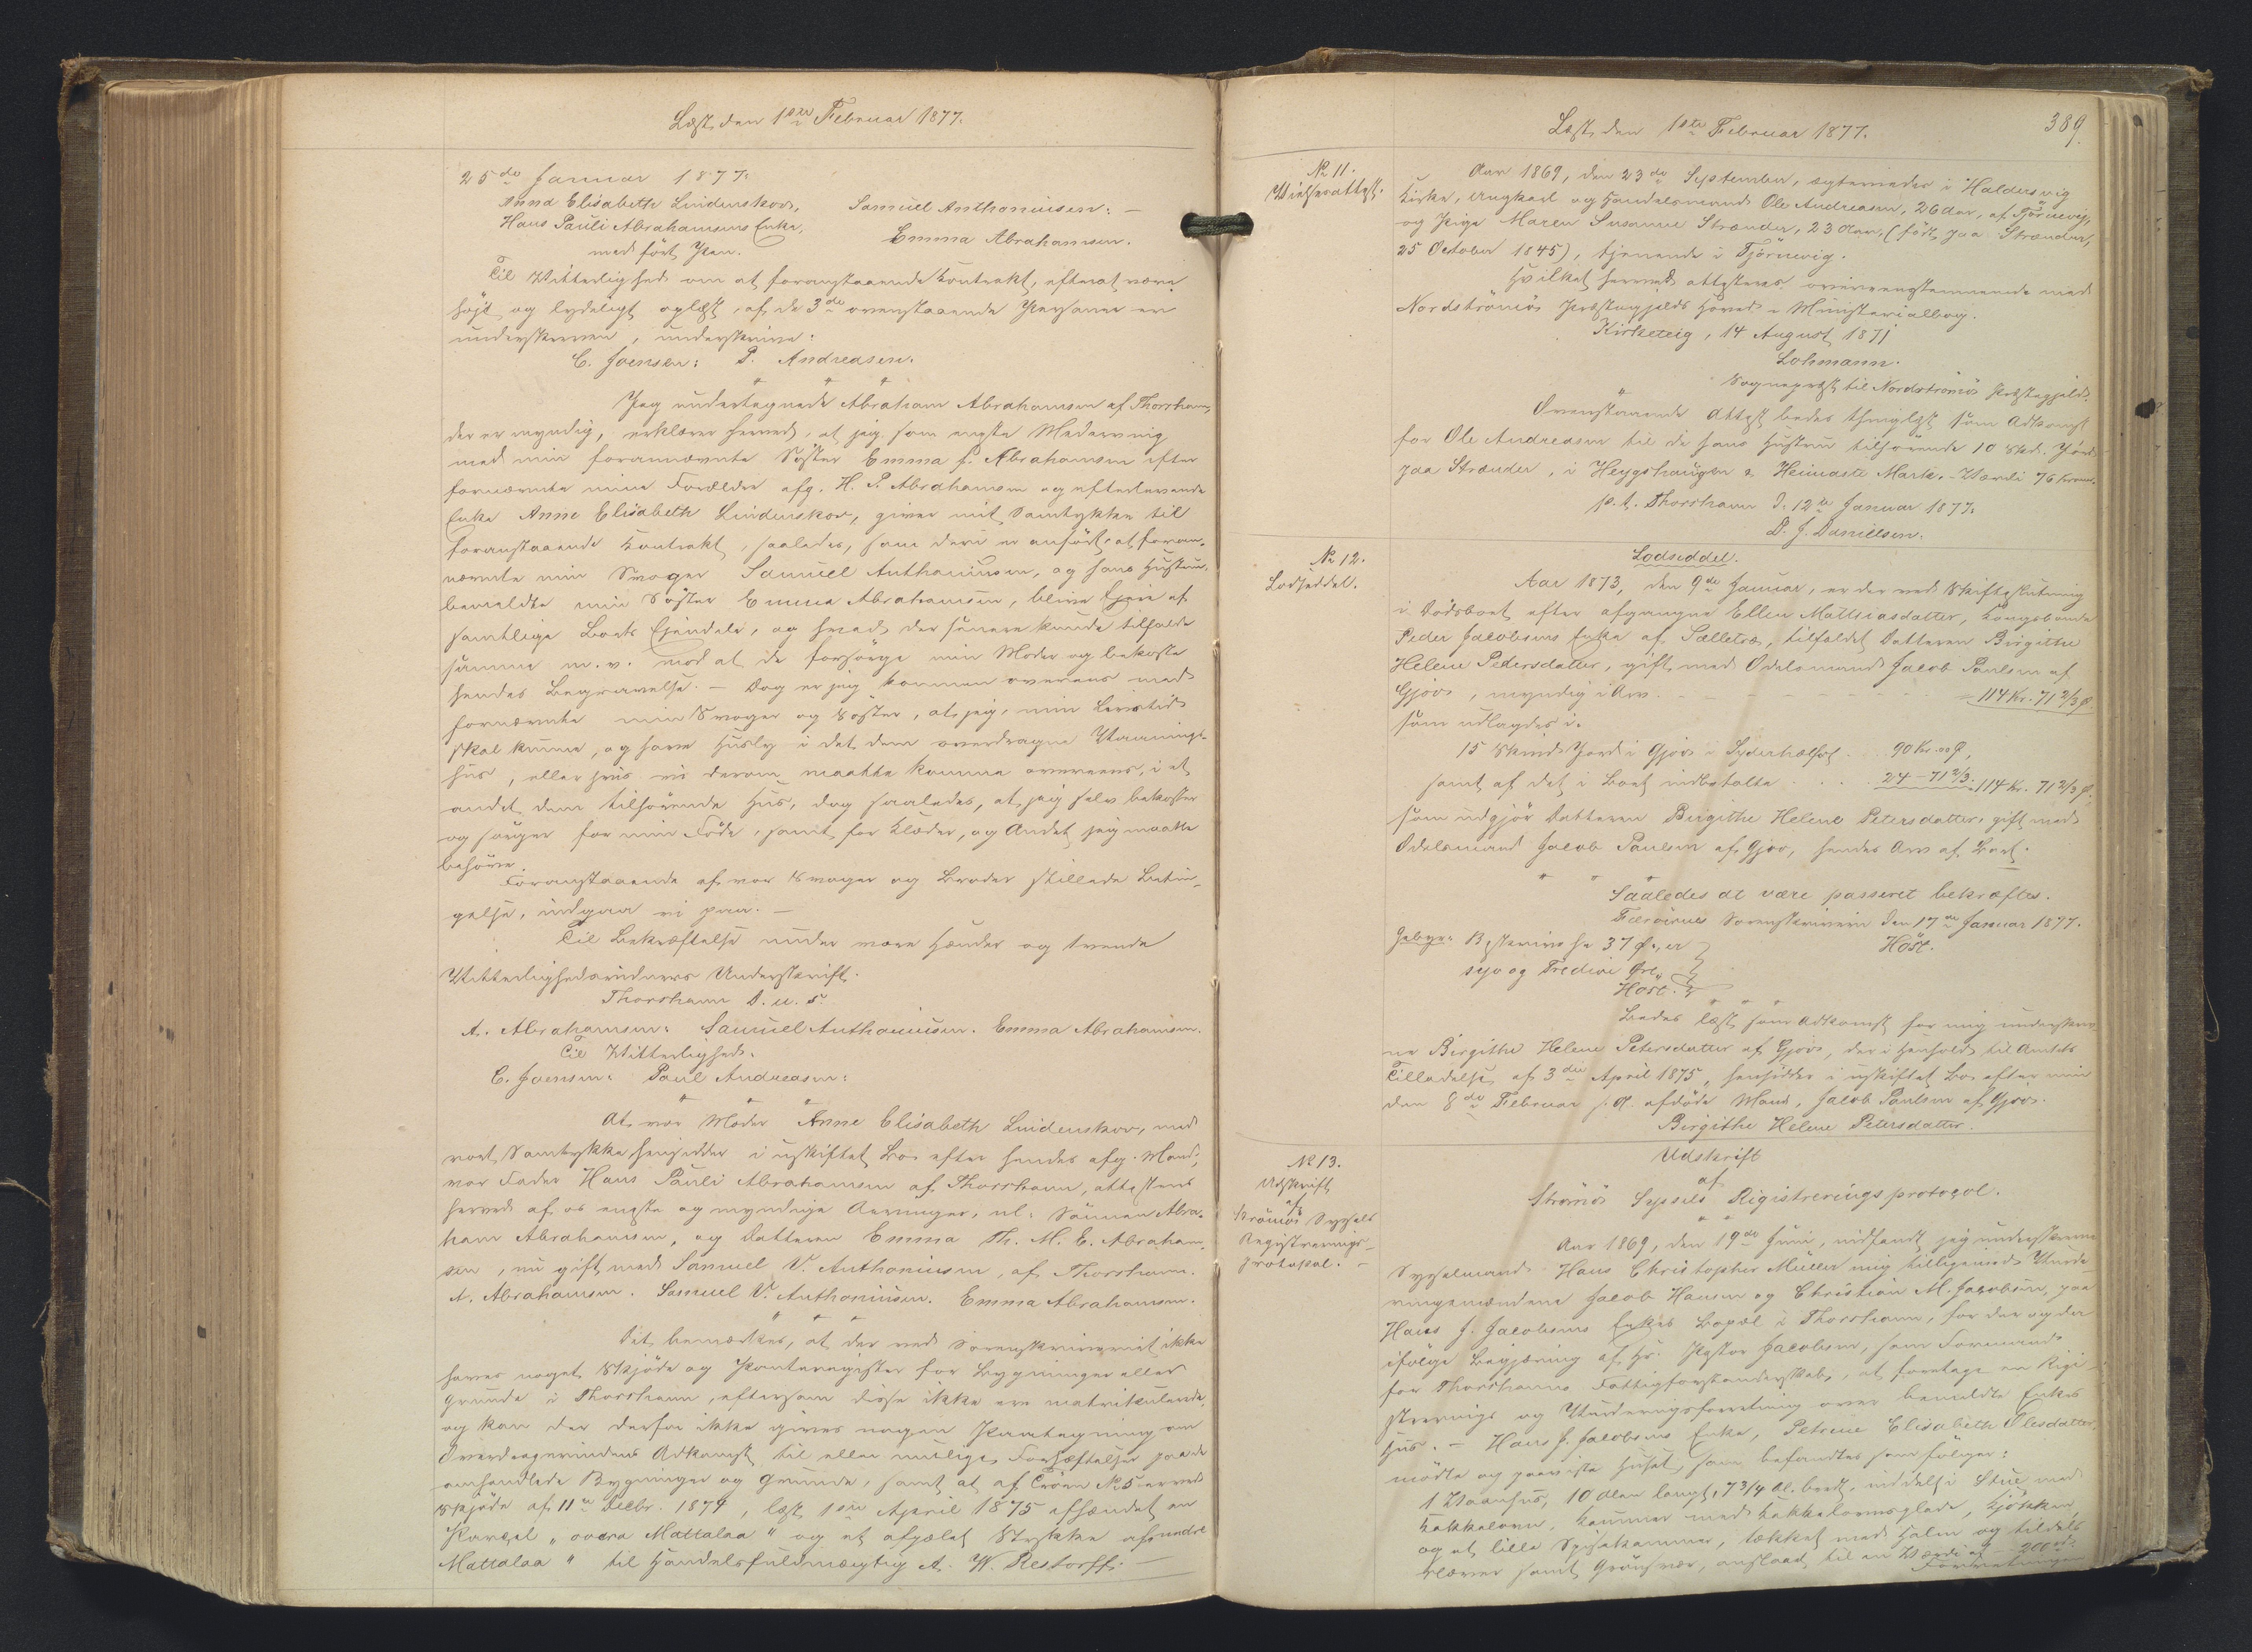 Læst den 1ste Februar 1877.
25de Januar 1877.
Anna Elisabeth Lindenskov, Samuel Anthoniusen: —
Hans Pauli Abrahamsens Enke, Emma Abrahamsen.
med ført Pen.
Til Vitterlighed om at foranstaaende Kontrakt, efterat være
høit og lydeligt oplæst, af de 3de ovenstaaende Personer er
underskreven, underskrive:
C. Joensen: P. Andreasen.
Jeg undertegnede Abraham Abrahamsen af Thorshavn,
der er myndig, erklærer herved, at jeg som eneste Medarving
med min forannævnte Søster Emma f. Abrahamsen efter
fornævnte mine Forældre afg. H. P. Abrahamsen og efterlevende
Enke Anne Elisabeth Lindenskov, giver mit Samtykke til
foranstaaende Kontrakt, saaledes, som deri er anført, at foran-
nævnte min Svoger Samuel Anthoniusen, og hans Hustru,
bemeldte min Søster Emma Abrahamsen, blive Ejere af
samtlige Boets Ejendele, og hvad der senere kunde tilfalde
samme m. v. mod at de forsørge min Moder og bekoste
hendes Begravelse. — Dog er jeg kommen overens med
fornævnte min Svoger og Søster, at jeg, min Livstid
skal kunne, og have Husly i det dem overdragne Vaanings-
hus, eller hvis vi derom maatte komme overeens, i et
andet dem tilhørende Hus, dog saaledes, at jeg selv bekoster
og sørger for min Føde, samt for Klæder, og Andet jeg maatte
behøve.
Foranstaaende af vor Svoger og Broder stillede Betin-
gelse, indgaar vi paa. —
Til Bekræftelse under vore Hænder og tvende
Vitterlighedsvidners Underskrift.
Thorshavn D. u. s.
A. Abrahamsen: Samuel Anthoniusen. Emma Abrahamsen.
Til Vitterlighed:
C. Joensen: Paul Andreasen:
At vor Moder Anne Elisabeth Lindenskov, med
vort Samtykke hensidder i uskiftet Bo efter hendes afg. Mand,
vor Fader Hans Pauli Abrahamsen af Thorshavn, attesteres
herved af os eneste og myndige Arvinger, nl: Sønnen Abra-
ham Abrahamsen, og Datteren Emma Th. M. E. Abraham-
sen, nu gift med Samuel V. Anthoniusen, af Thorshavn.
A. Abrahamsen. Samuel V. Anthoniusen. Emma Abrahamsen.
Det bemærkes, at der ved Sorenskriveriet ikke
haves noget Skjøde og Panteregister for Bygninger eller
Grunde i Thorshavn, eftersom disse ikke ere matrikulerede,
og kan der derfor ikke gives nogen Paategning om
Overdragerindens Adkomst til eller mulige Forhæftelser paa de
omhandlede Bygninger og Grunde, samt at af Trøen No 5 er ved
Skjøde af 11te Decbr. 1874, læst 1ste April 1875 afhændet en
Parcel "overa Mattalaa" og et afpælet Stykke af "nedre
Mattalaa" til Handelsfuldmægtig A. W. Restorff: —
Læst den 1ste Februar 1877.
389.
No 11.
Vielsesattest.
Aar 1869, den 23de September, ægteviedes i Haldersvig
Kirke, Ungkarl og Handelsmand Ole Andreasen, 26 Aar, af Tjörnevig,
og Pige Maren Susanne Strænder, 23 Aar, (født paa Strænder,
25 October 1845), tjenende i Tjörnevig.
Hvilket herved attesteres overeensstemmende med
Nordströmös Præstegjelds Hoved-Ministerialbog.
Kirketeig, 14 August 1871
Lohmann.
Sognepræst til Nordströmös Præstegjæld.
Ovenstaaende Attest bedes thinglæst som Adkomst
for Ole Andreasen til de hans Hustru tilhørende 10 Skd. Jord
paa Strænder, i Heygshaugen & Heimaste Mark. - Værdi 76 Kroner.
p. t. Thorshavn d. 12te Januar 1877.
D. J. Danielsen.
No 12.
Lodseddel.
Lodseddel.
Aar 1873, den 9de Januar, er der ved Skifteslutning
i Dødsboet efter afgangne Ellen Matthiasdatter, Kongsbonde
Peder Jacobsens Enke af Sælletræ, tilfaldet Datteren Birgithe
Helene Petersdatter, gift med Odelsmand Jacob Paulsen af
Gjov, myndig i Arv - - - - - 114 Kr. 71 2/3 Ø.
som udlagdes i.
15 Skind Jord i Gjov i Syderhælft . . 90 Kr. 00 Ø,
samt af det i Boet indbetalte . . . . 24 - 71 2/3. 114 Kr. 71 2/3 Ø.
som udgjør Datteren Birgithe Helene Petersdatter, gift med
Odelsmand Jacob Paulsen af Gjov, hendes Arv af Boet.
Saaledes at være passeret bekræftes.
Færöernes Sorenskriveri den 17de Januar 1877.
Høst.
Gebyr: Beskrivelse 37 Ø. er
syv og Tredive Øre
Høst.
Bedes læst som Adkomst for mig underskrev-
ne Birgithe Helene Petersdatter af Gjov, der i Henhold til Amtets
Tilladelse af 3die April 1875, hensidder i uskiftet Bo efter min
den 8de Februar s. A. afdøde Mand, Jacob Paulsen af Gjov.
Birgithe Helene Petersdatter.
No 13.
Udskrift
af
Strömös Syssels
Registrerings-
protokol. —
Udskrift
af
Strömös Syssels Rigistreringsprotocol.
Aar 1869, den 19de Juni, indfandt jeg underskrevne
Sysselmand Hans Christopher Müller mig tilligemed Vurde-
ringsmændene Jacob Hansen og Christian M. Jacobsen, paa
Hans J. Jacobsens Enkes Bopæl i Thorshavn, for der og da
ifølge Begjæring af Hr. Pastor Jacobsen, som Formand
for Thorshavns Fattigforstanderskab, at foretage en Rigi-
strerings og Vurderingsforretning over bemeldte Enkes
Hus. — Hans J. Jacobsens Enke, Petrine Elisabeth Olesdatter,
mødte og paaviste Huset, som befandtes som følger:
1 Vaanhus, 10 Alen langt, 7 3/4 Al. bredt, inddelt i Stue med
Kakkelovn, Kammer med Kakkelovnsplade, Kjökken
og et lille Spisekammer, tækket med Halm og tildels
Næver samt Grönsvær, anslaaet til en Værdi af 200 rd.
Forretningen